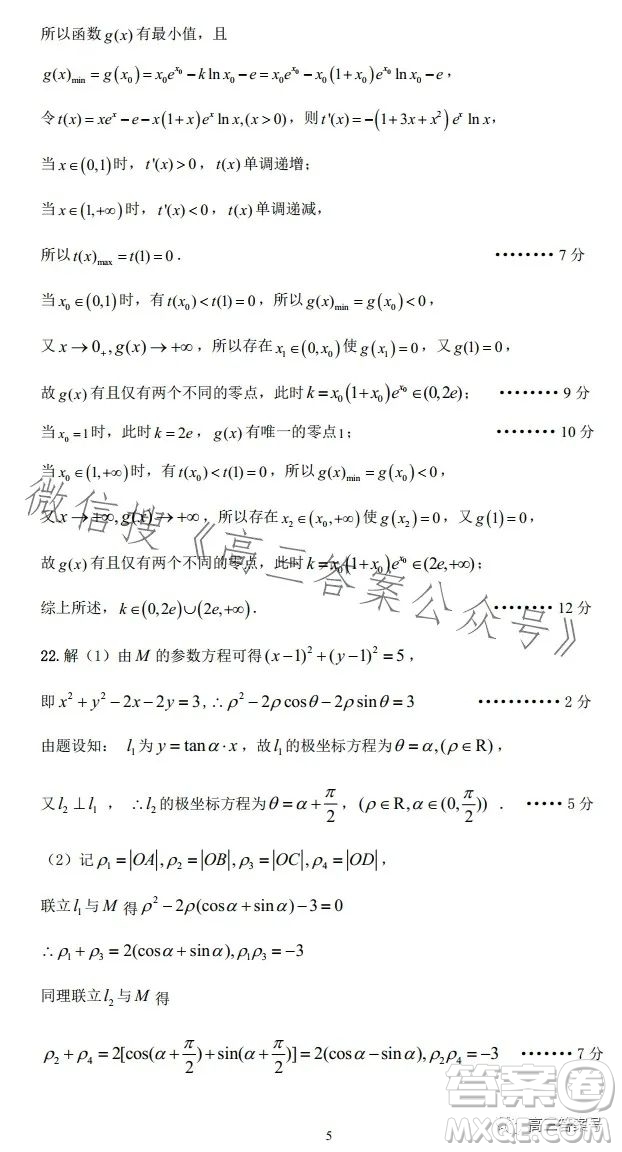 所以函数g(x)有最小值，且
g(x)min = g(x₀) = x₀e^x₀ − k ln x₀ − e = x₀e^x₀ − x₀(1+x₀)e^x₀ ln x₀ − e，
令t(x) = xe^x − e − x(1+x)e^x ln x,(x>0)，则t'(x) = −(1+3x+x²)e^x ln x，
当x∈(0,1)时，t'(x)>0，t(x)单调递增；
当x∈(1,+∞)时，t'(x)<0，t(x)单调递减，
所以t(x)max = t(1) = 0． ········7分
当x₀∈(0,1)时，有t(x₀)<t(1)=0，所以g(x)min = g(x₀)<0，
又x→0₊,g(x)→+∞，所以存在x₁∈(0,x₀)使g(x₁)=0，又g(1)=0，
故g(x)有且仅有两个不同的零点，此时k=x₀(1+x₀)e^x₀∈(0,2e)； ········9分
当x₀=1时，此时k=2e，g(x)有唯一的零点1； ········10分
当x₀∈(1,+∞)时，有t(x₀)<t(1)=0，所以g(x)min = g(x₀)<0，
又x→+∞,g(x)→+∞，所以存在x₂∈(x₀,+∞)使g(x₂)=0，又g(1)=0，
故g(x)有且仅有两个不同的零点，此时k=x₀(1+x₀)e^x₀∈(2e,+∞)；
综上所述，k∈(0,2e)∪(2e,+∞)． ········12分
微信搜《高三答案公众号》
22.解（1）由M的参数方程可得(x−1)²+(y−1)²=5，
即x²+y²−2x−2y=3，∴ρ²−2ρcosθ−2ρsinθ=3 ···········2分
由题设知： l₁为y=tanα·x，故l₁的极坐标方程为θ=α,(ρ∈R)，
又l₂⊥l₁ ， ∴l₂的极坐标方程为θ=α+π/2，(ρ∈R,α∈(0,π/2)) ． ·····5分
（2）记ρ₁=|OA|,ρ₂=|OB|,ρ₃=|OC|,ρ₄=|OD|，
联立l₁与M得ρ²−2ρ(cosα+sinα)−3=0
∴ρ₁+ρ₃=2(cosα+sinα),ρ₁ρ₃=−3
同理联立l₂与M得
ρ₂+ρ₄=2[cos(α+π/2)+sin(α+π/2)]=2(cosα−sinα),ρ₂ρ₄=−3 ·······7分
答案圈
高三答案号
5